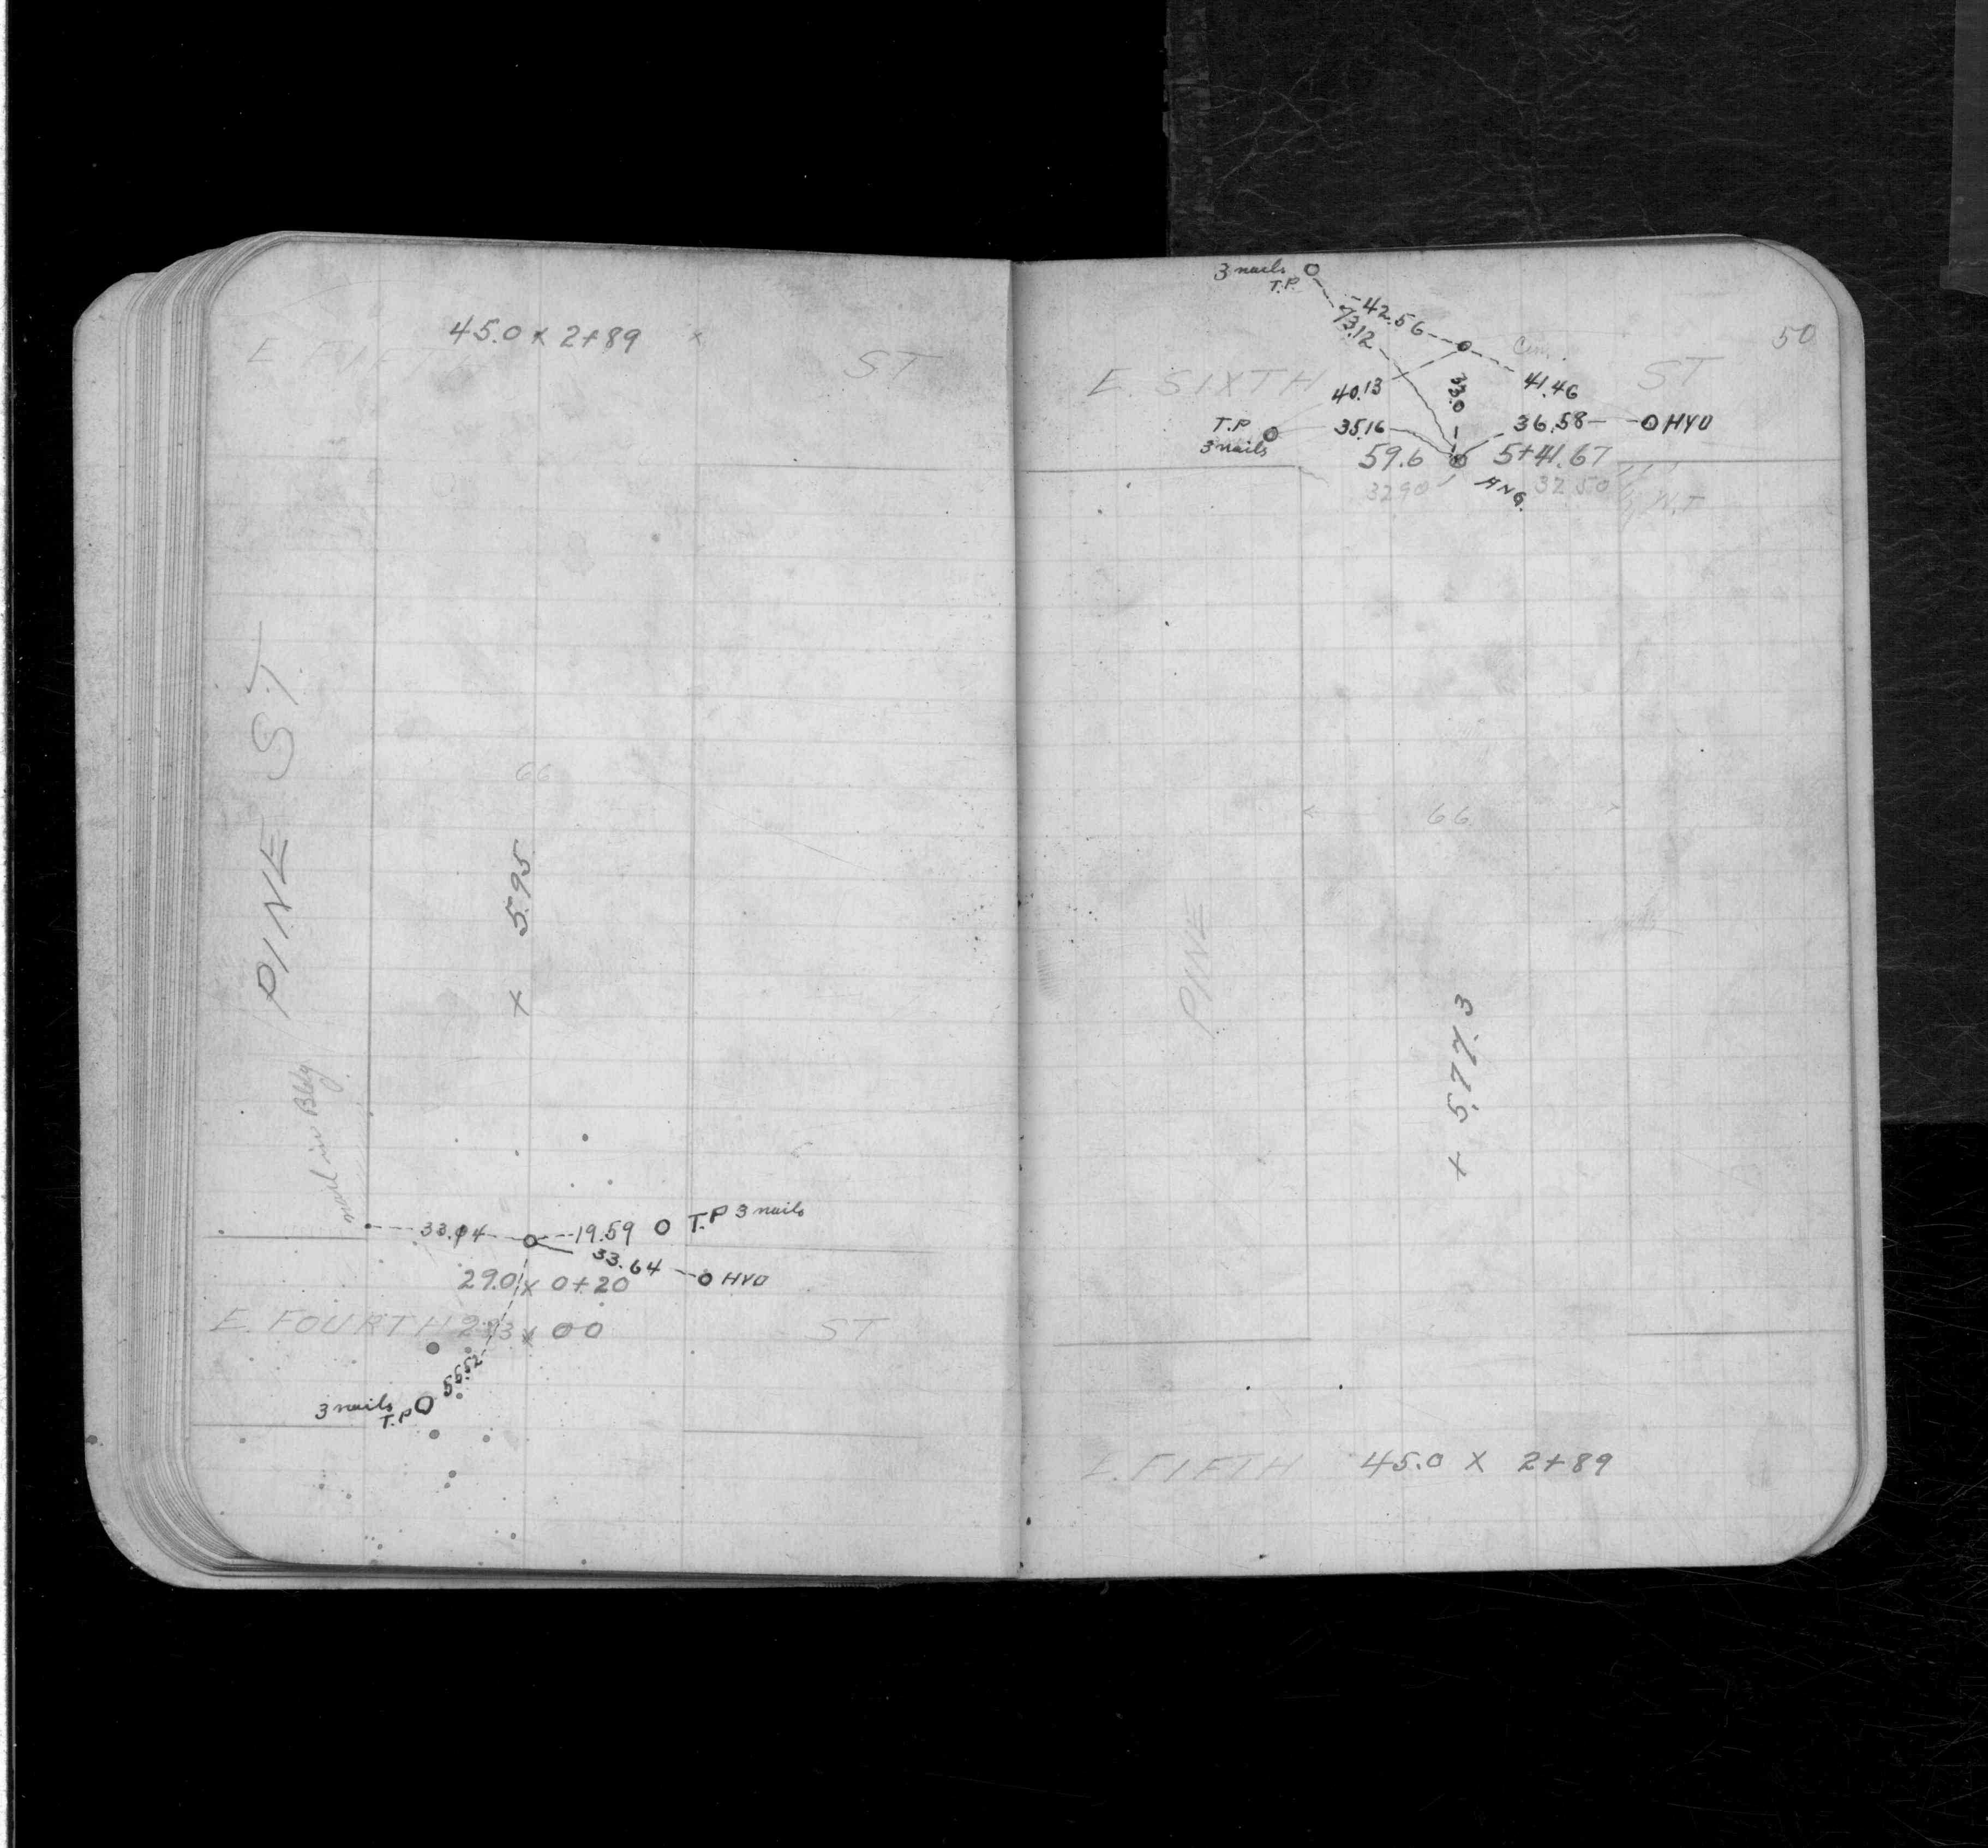 45.0 x 2+89 x
E. FIFTH ST
PINE ST.
66
x 5.95
nail in Bldg
33.04 19.59 T.P 3 nails
33.64 HYD
29.0 x 0+20
E. FOURTH x 00 ST
55.52
3 nails
T.P
50
3 nails
T.P.
42.56
73.12
Cem.
E. SIXTH ST
40.13 33.0 41.46
T.P 35.16 36.58 HYD
3 nails
59.6 5+41.67
32.90 ANG. 32.50
66
PINE
+ 577.3
E. FIFTH 45.0 x 2+89